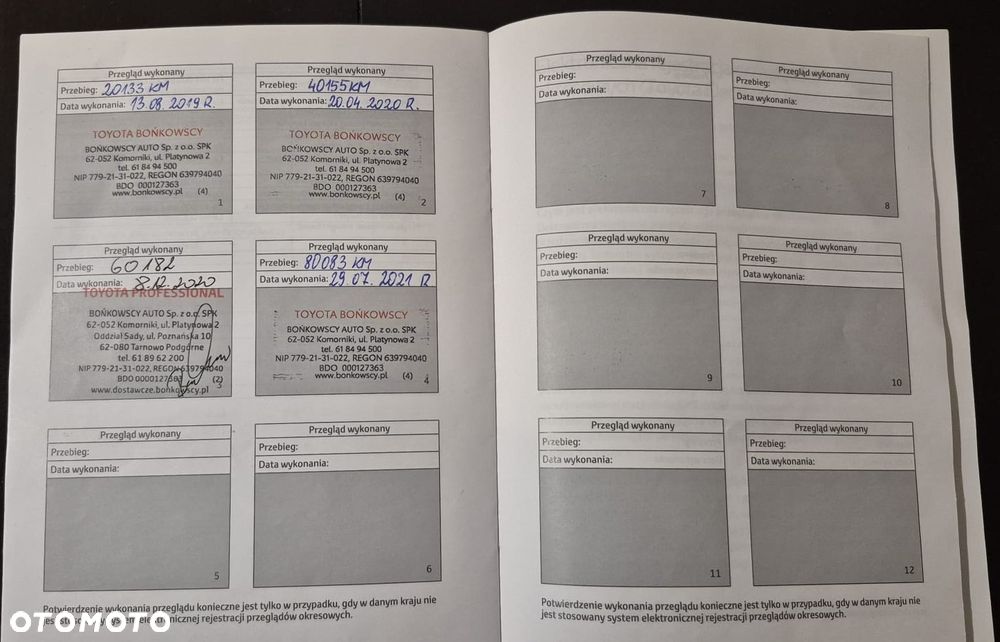 Przegląd wykonany
Przebieg: 20133 KM
Data wykonania: 13.08.2019 R.
TOYOTA BOŃKOWSCY
BOŃKOWSCY AUTO Sp. z o.o. SPK
62-052 Komorniki, ul. Platynowa 2
tel. 61 84 94 500
NIP 779-21-31-022, REGON 639794040
BDO 000127363
www.bonkowscy.pl (4)
1
Przegląd wykonany
Przebieg: 40155 KM
Data wykonania: 20.04.2020 R.
TOYOTA BOŃKOWSCY
BOŃKOWSCY AUTO Sp. z o.o. SPK
62-052 Komorniki, ul. Platynowa 2
tel. 61 84 94 500
NIP 779-21-31-022, REGON 639794040
BDO 000127363
www.bonkowscy.pl (4)
2
Przegląd wykonany
Przebieg: 60182
Data wykonania: 8.12.2020
TOYOTA PROFESSIONAL
BOŃKOWSCY AUTO Sp. z o.o. SPK
62-052 Komorniki, ul. Platynowa 2
Oddział Sady, ul. Poznańska 10
62-080 Tarnowo Podgórne
tel. 61 89 62 200
NIP 779-21-31-022, REGON 639794040
BDO 0000127363 (2)
www.dostawcze.bonkowscy.pl
3
Przegląd wykonany
Przebieg: 80083 KM
Data wykonania: 29.07.2021 R
TOYOTA BOŃKOWSCY
BOŃKOWSCY AUTO Sp. z o.o. SPK
62-052 Komorniki, ul. Platynowa 2
tel. 61 84 94 500
NIP 779-21-31-022, REGON 639794040
BDO 000127363
www.bonkowscy.pl (4)
4
Przegląd wykonany
Przebieg:
Data wykonania:
5
Przegląd wykonany
Przebieg:
Data wykonania:
6
Potwierdzenie wykonania przeglądu konieczne jest tylko w przypadku, gdy w danym kraju nie
jest stosowany system elektronicznej rejestracji przeglądów okresowych.
Przegląd wykonany
Przebieg:
Data wykonania:
7
Przegląd wykonany
Przebieg:
Data wykonania:
8
Przegląd wykonany
Przebieg:
Data wykonania:
9
Przegląd wykonany
Przebieg:
Data wykonania:
10
Przegląd wykonany
Przebieg:
Data wykonania:
11
Przegląd wykonany
Przebieg:
Data wykonania:
12
Potwierdzenie wykonania przeglądu konieczne jest tylko w przypadku, gdy w danym kraju nie
jest stosowany system elektronicznej rejestracji przeglądów okresowych.
OTOMOTO